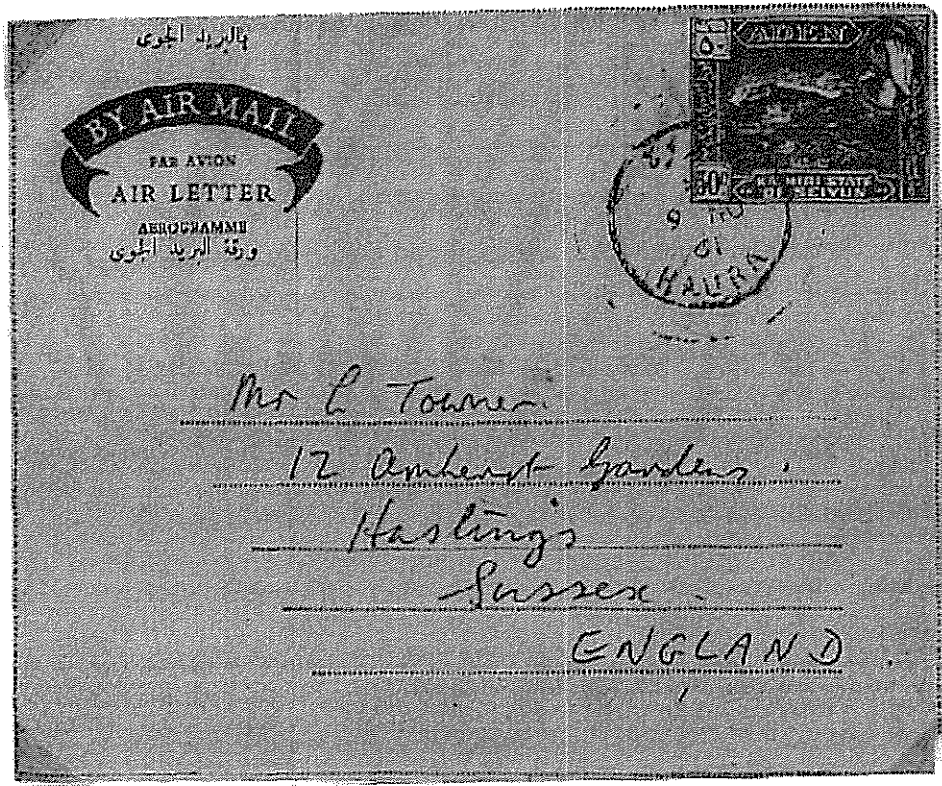 بالبريد الجوى
BY AIR MAIL
PAR AVION
AIR LETTER
AEROGRAMME
ورقة البريد الجوى
ADEN
٥٠
50
KATHIRI STATE
OF SEIYUN
9
61
HAURA
Mr C Towner.
12 Amherst Gardens.
Hastings
Sussex.
ENGLAND